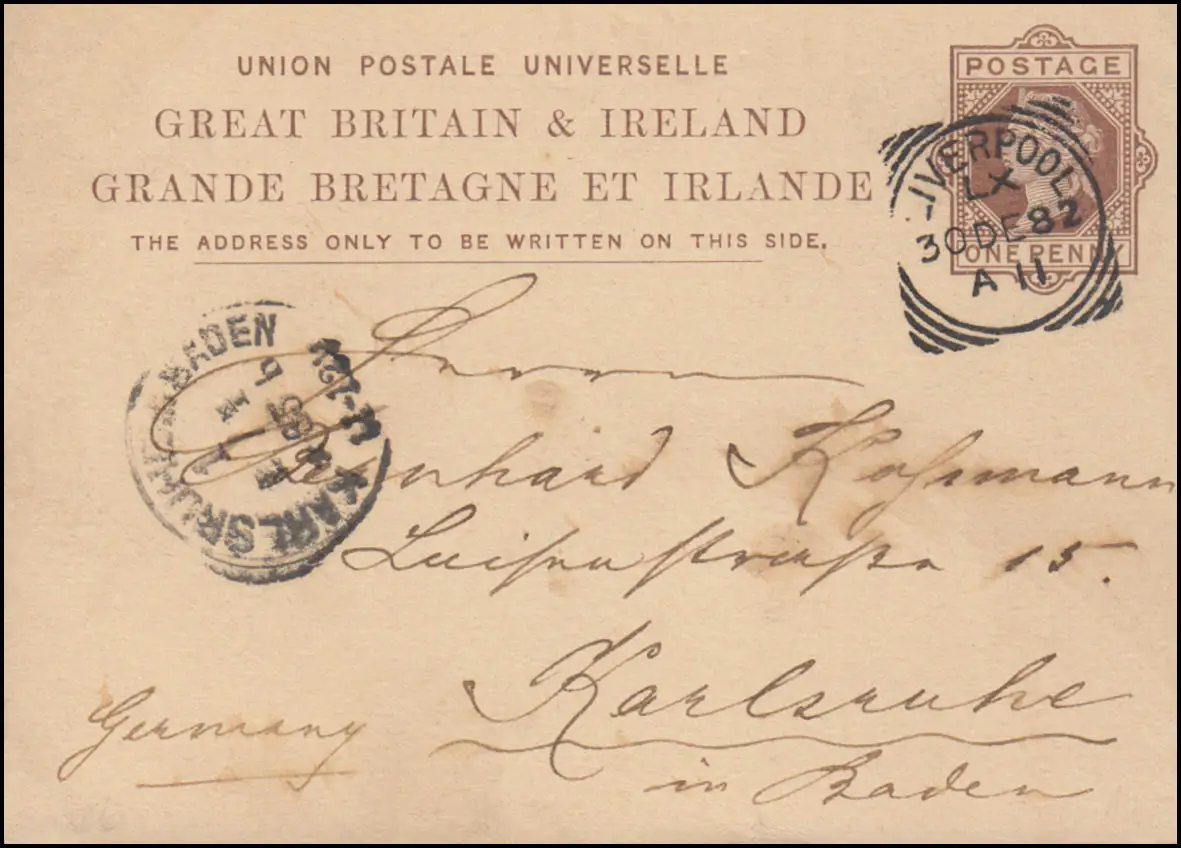 UNION POSTALE UNIVERSELLE
GREAT BRITAIN & IRELAND
GRANDE BRETAGNE ET IRLANDE
THE ADDRESS ONLY TO BE WRITTEN ON THIS SIDE.
POSTAGE
ONE PENNY
LIVERPOOL
LX
30 DE 82
A 11
KARLSRUHE BADEN
Herrn
Bernhard Koßmann
Luisenstraße 15.
Karlsruhe
in Baden
Germany